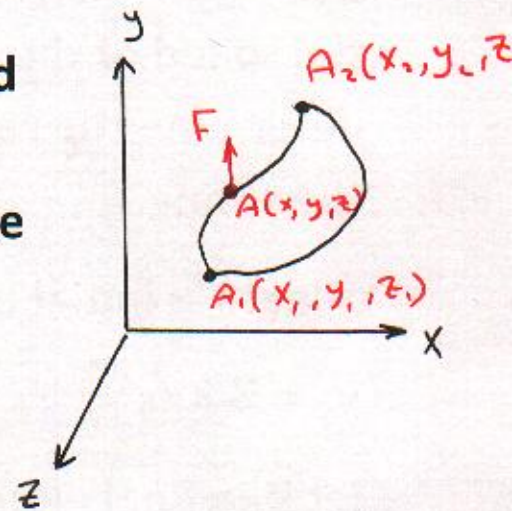 y
d
A₂(x₂, y₂, z
F
e
A(x, y, z)
A₁(x₁, y₁, z₁)
x
z